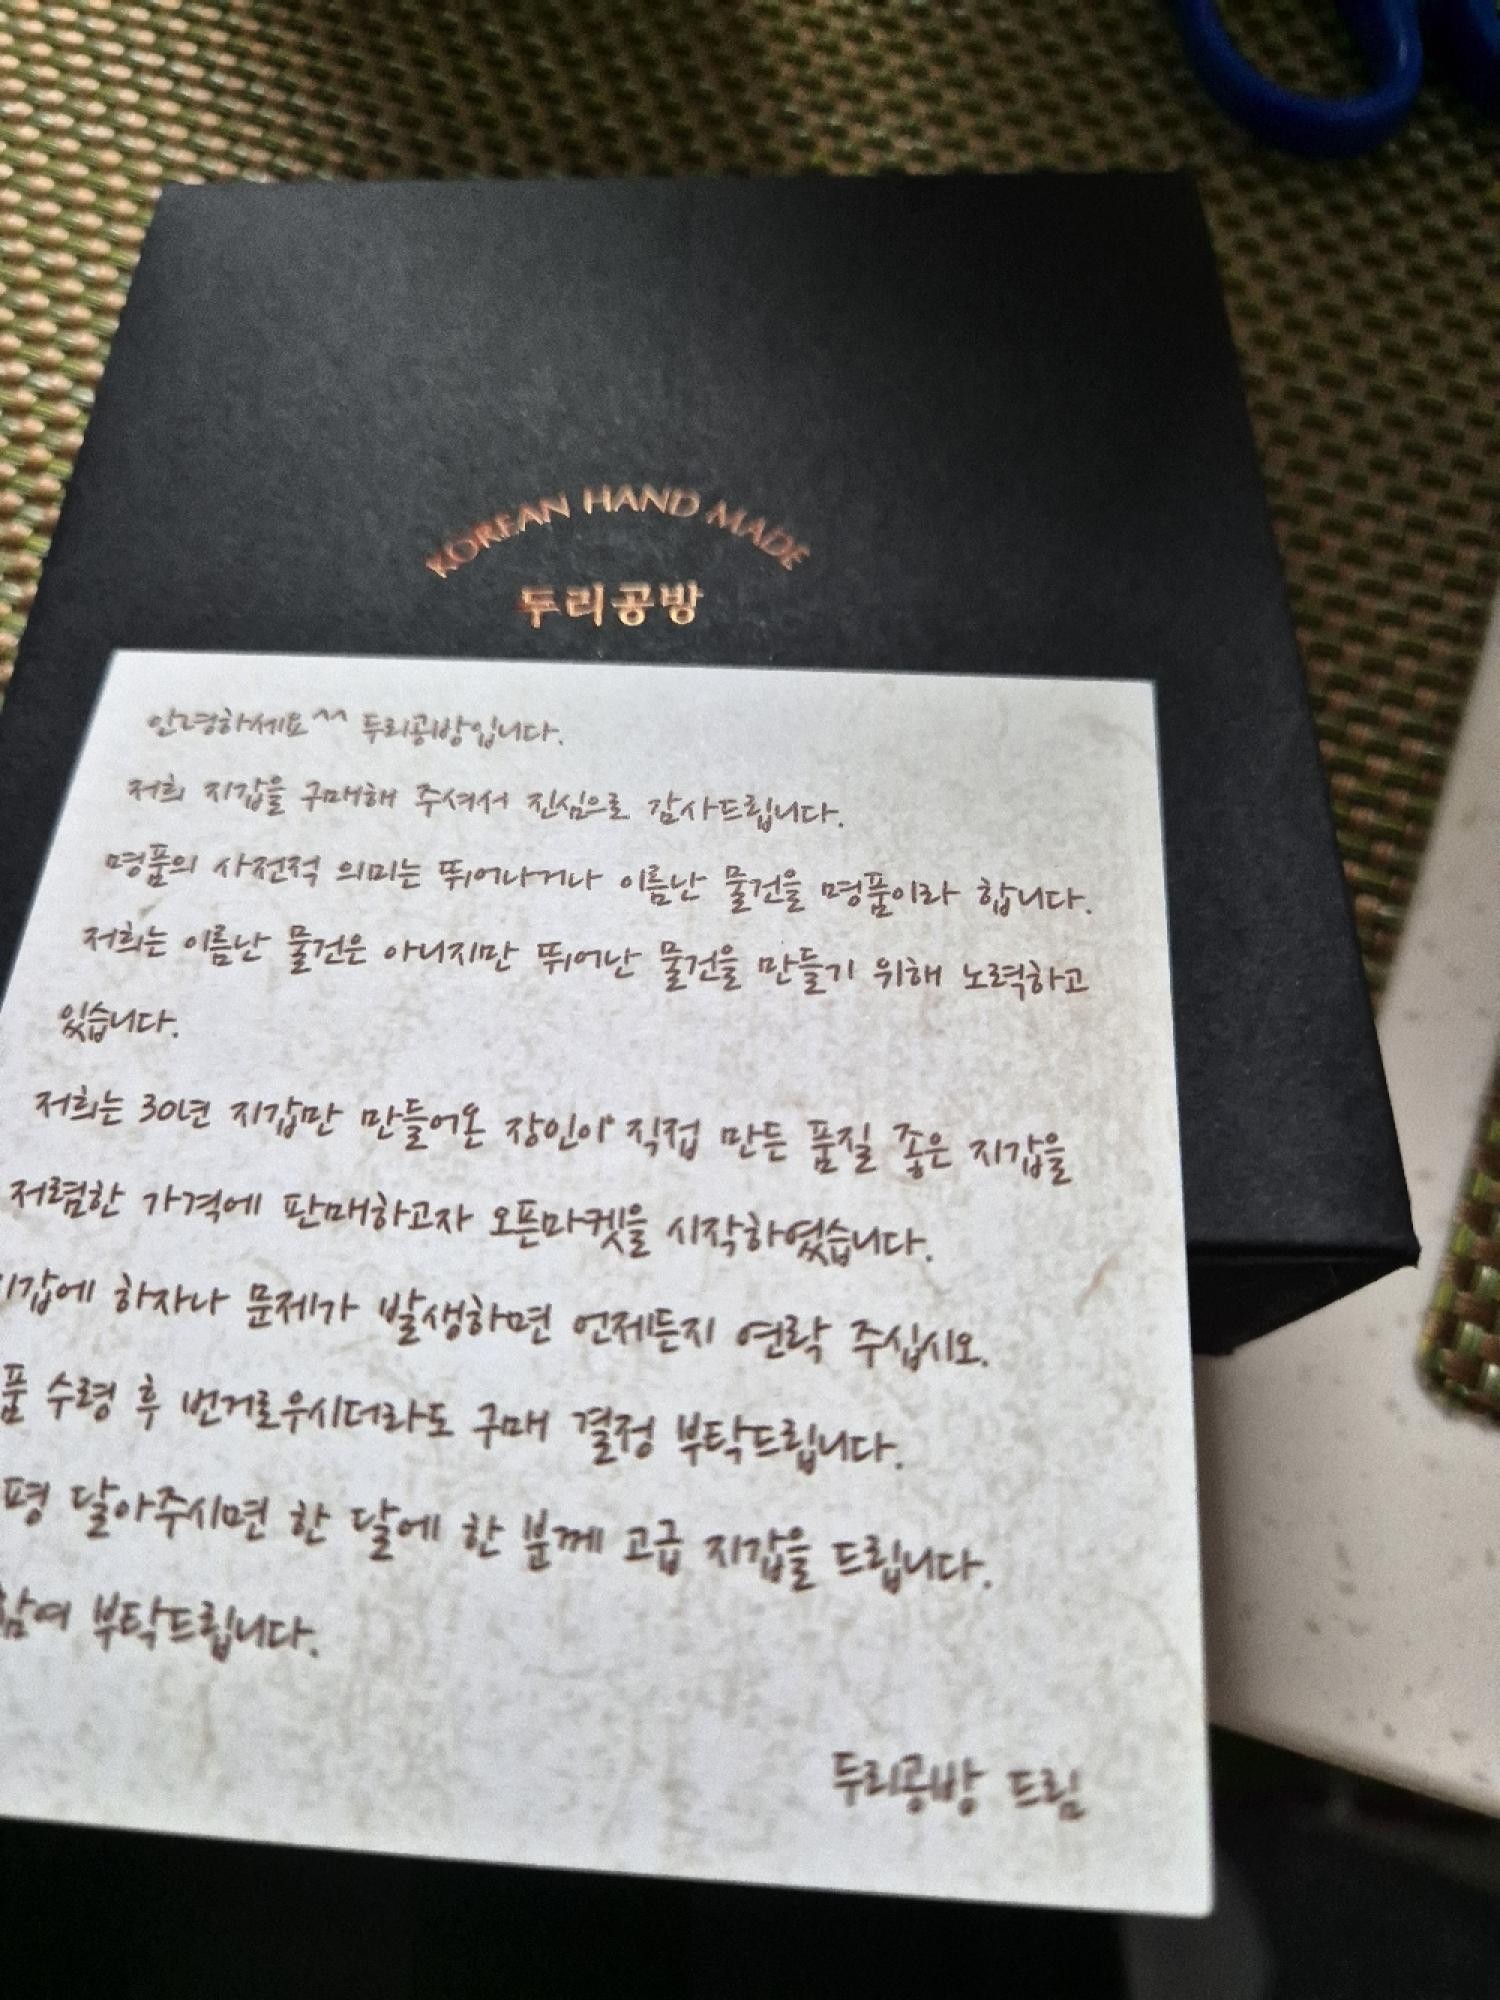 KOREAN HAND MADE
두리공방
안녕하세요^^ 두리공방입니다.
저희 지갑을 구매해 주셔서 진심으로 감사드립니다.
명품의 사전적 의미는 뛰어나거나 이름난 물건을 명품이라 합니다.
저희는 이름난 물건은 아니지만 뛰어난 물건을 만들기 위해 노력하고
있습니다.
저희는 30년 지갑만 만들어온 장인이 직접 만든 품질 좋은 지갑을
저렴한 가격에 판매하고자 오픈마켓을 시작하였습니다.
하자나 문제가 발생하면 언제든지 연락 주십시오.
품 수령 후 번거로우시더라도 구매 결정 부탁드립니다.
평 달아주시면 한 달에 한 분께 고급 지갑을 드립니다.
참여 부탁드립니다.
두리공방 드림